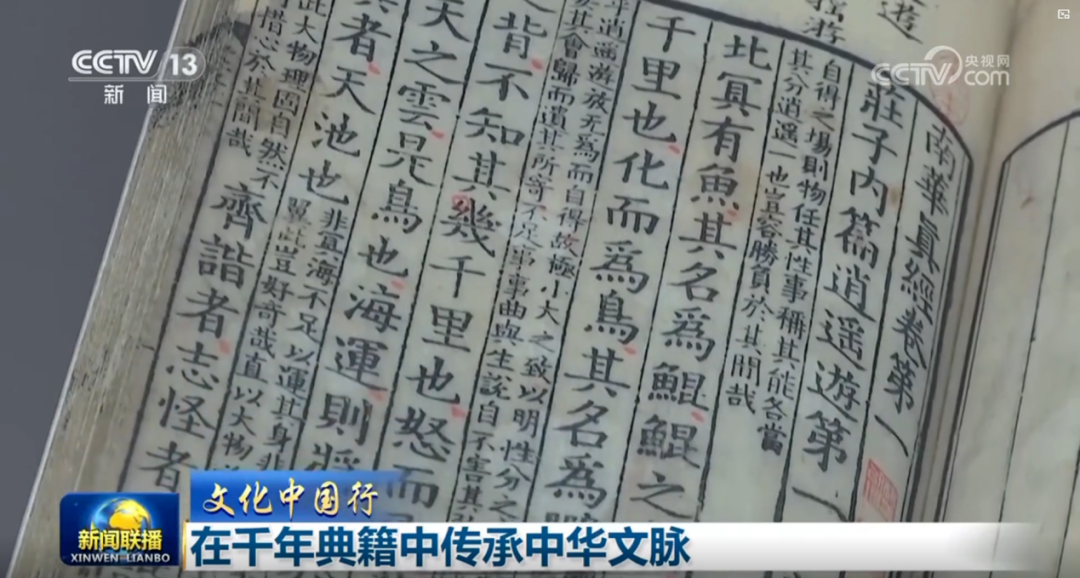 CCTV 13
新闻
CCTV 央视网
com
南華眞經卷第一
莊子内篇逍遥遊第一
自得之場則物任其性事稱其能各當
其分逍遥一也豈容勝負於其間哉
北冥有魚其名爲鯤鯤之
千里也化而爲鳥其名爲
逍遥遊放无爲而自得故極小大之致以明性分之
其會歸而遺其所寄不足事事曲與生說自不害其
之背不知其幾千里也怒而
天之雲是鳥也海運則將
者天池也
非冥海不足以運其身非
翼此豈好奇哉直以大物
此大物理固自然不
措心於其間哉
齊諧者志怪者
文化中国行
新闻联播
XINWEN-LIANBO
在千年典籍中传承中华文脉